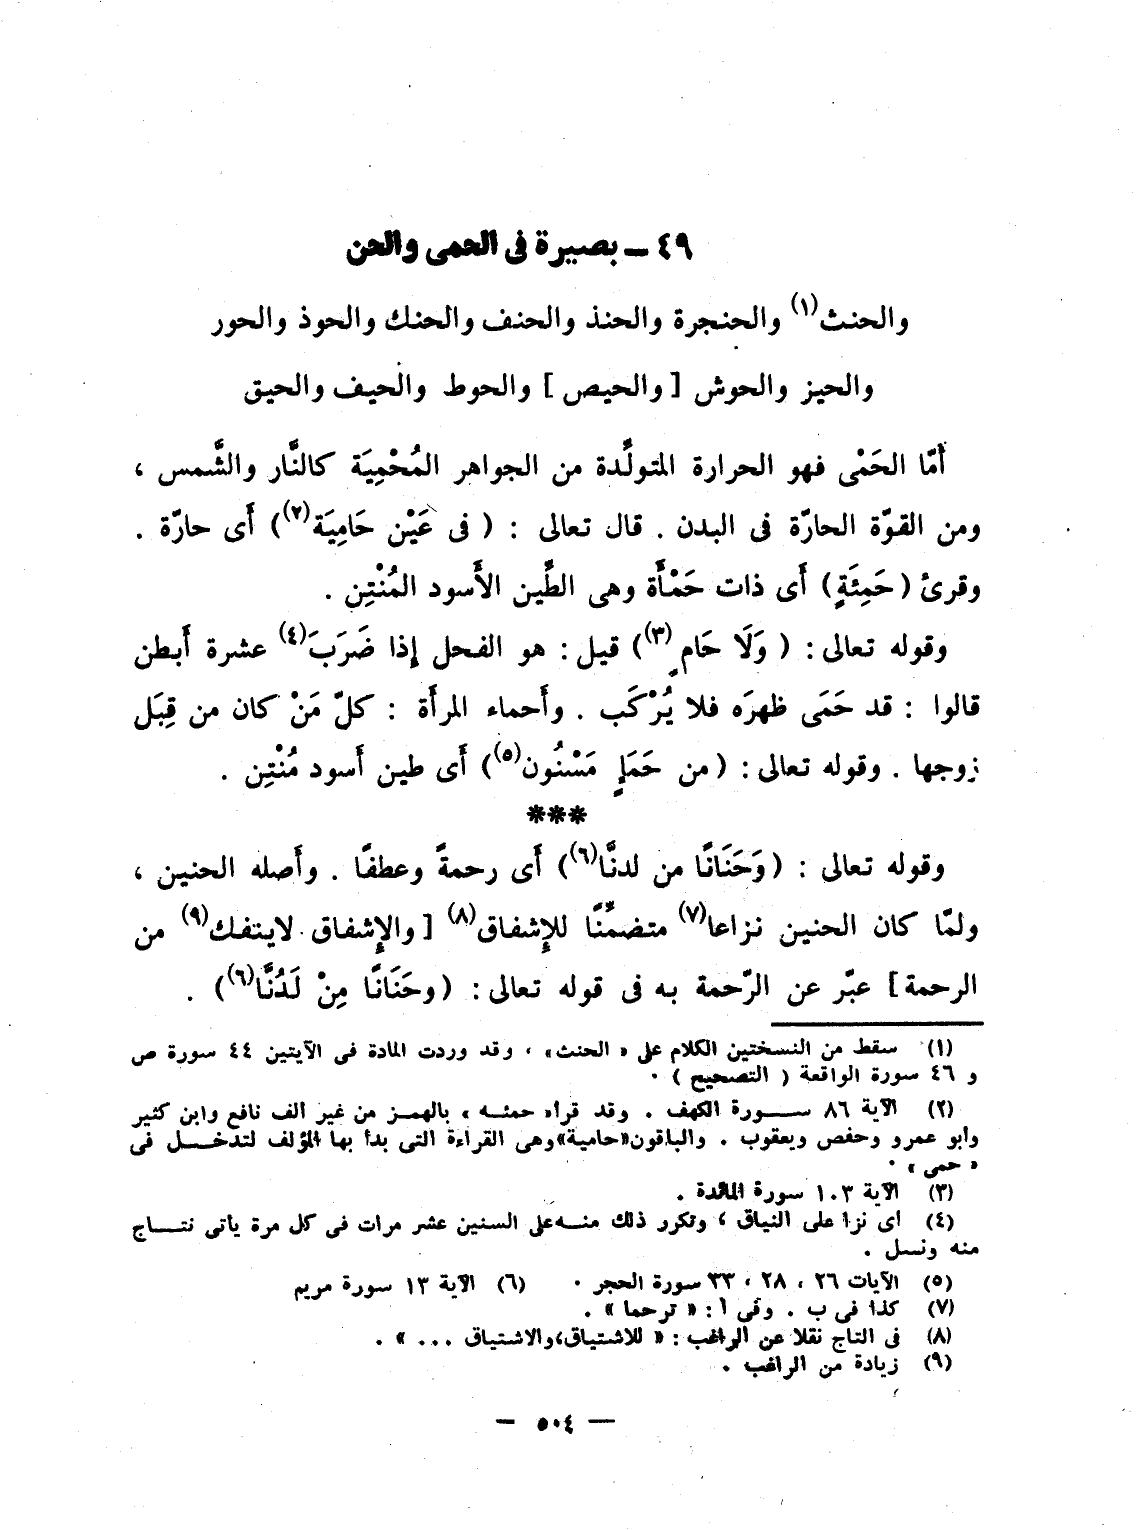 ٤٩ ــ بصيرة فى الحمى والحن
والحنث(١) والحنجرة والحنذ والحنف والحنك والحوذ والحور
والحيز والحوش [ والحيص ] والحوط والحيف والحيق
أَمّا الحَمْى فهو الحرارة المتولَّدة من الجواهر المُحْمِيَة كالنَّار والشَّمس ،
ومن القوّة الحارّة فى البدن . قال تعالى : ( فى عَيْن حَامِيَة(٢)) أَى حارّة .
وقرئ ( حَمِئَةٍ ) أَى ذات حَمْأَة وهى الطِّين الأَسود المُنْتِن .
وقوله تعالى : ( وَلَا حَامٍ(٣)) قيل : هو الفحل إذا ضَرَبَ(٤) عشرة أَبطن
قالوا : قد حَمَى ظهرَه فلا يُرْكَب . وأَحماء المرأَة : كلّ مَنْ كان من قِبَل
زوجها . وقوله تعالى : ( من حَمَإٍ مَسْنُون(٥)) أَى طين أَسود مُنْتِن .
***
وقوله تعالى : ( وَحَنَانًا من لدنَّا(٦)) أَى رحمةً وعطفًا . وأَصله الحنين ،
ولمّا كان الحنين نزاعا(٧) متضمِّنًا للإِشفاق(٨) [ والإِشفاق لاينفك(٩) من
الرحمة ] عبّر عن الرّحمة به فى قوله تعالى : ( وحَنَانًا مِنْ لَدُنَّا(٦)) .
(١) سقط من النسختين الكلام على « الحنث » ، وقد وردت المادة فى الآيتين ٤٤ سورة ص
و ٤٦ سورة الواقعة ( التصحيح ) .
(٢) الآية ٨٦ سورة الكهف . وقد قرأ« حمئة » بالهمز من غير الف نافع وابن كثير
وابو عمرو وحفص ويعقوب . والباقون«حامية»وهى القراءة التى بدأ بها المؤلف لتدخل فى
« حمى » .
(٣) الآية ١٠٣ سورة المائدة .
(٤) اى نزا على النياق ، وتكرر ذلك منه على السنين عشر مرات فى كل مرة ياتى نتاج
منه ونسل .
(٥) الآيات ٢٦ ، ٢٨ ، ٣٣ سورة الحجر . (٦) الآية ١٣ سورة مريم
(٧) كذا فى ب . وفى أ : « ترحما » .
(٨) فى التاج نقلا عن الراغب : « للاشتياق،والاشتياق ... » .
(٩) زيادة من الراغب .
— ٥٠٤ —